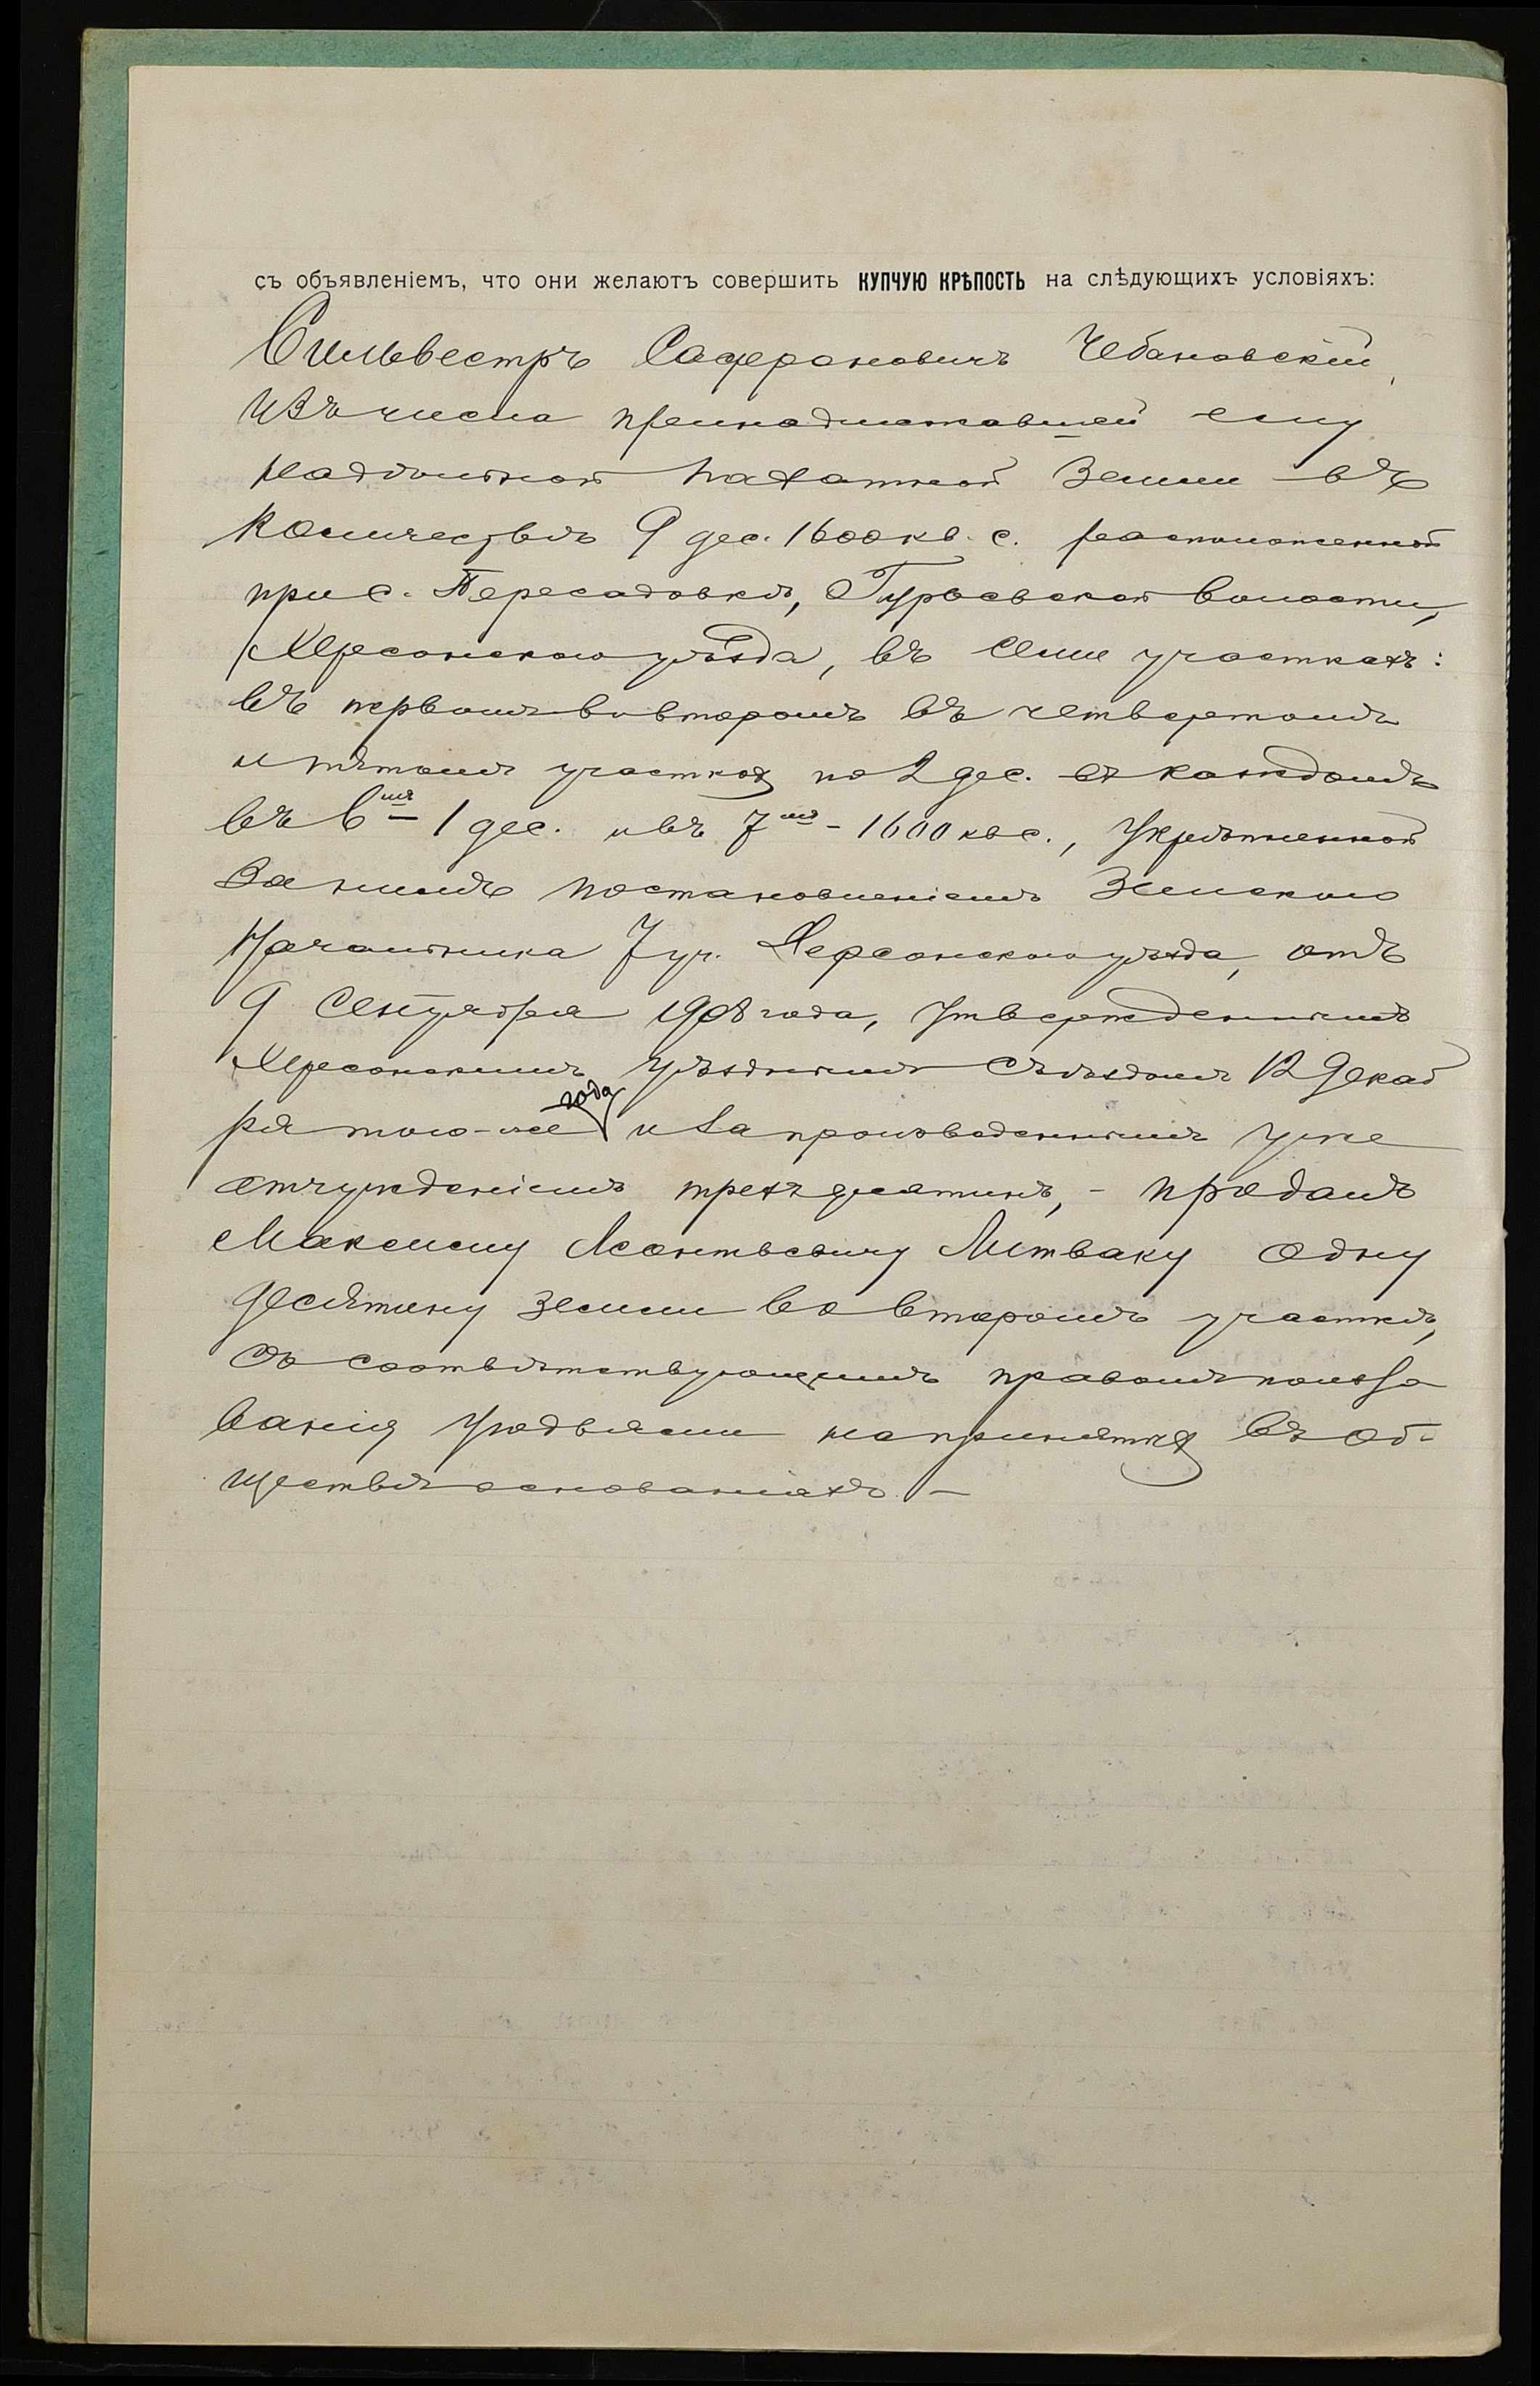 съ объявленіемъ, что они желаютъ совершить КУПЧУЮ КРѢПОСТЬ на слѣдующихъ условіяхъ:
Сильвестръ Сафроновичъ Чебановскій,
изъ числа принадлежавшей ему
надѣльной пахатной земли въ
количествѣ 9 дес. 1600 кв. с. расположенной
при с. Пересадовкѣ, Гурьевской волости,
Херсонскаго уѣзда, въ семи участкахъ:
въ первомъ во второмъ въ четвертомъ
и пятомъ участкахъ по 2 дес. въ каждомъ
въ 6мъ – 1 дес. и въ 7мъ – 1600 кв с., укрѣпленной
за нимъ постановленіемъ Земскаго
Начальника 7 уч. Херсонскаго уѣзда, отъ
9 Сентября 1908 года, утвержденнымъ
Херсонскимъ уѣзднымъ съѣздомъ 12 Декаб
ря того-же года и за произведеннымъ уже
отчужденіемъ трехъ десятинъ, – продалъ
Максиму Леонтьевичу Литваку одну
десятину земли во второмъ участкѣ,
съ соотвѣтствующимъ правомъ пользо
ванія угодьями на принятыхъ въ об-
ществѣ основаніяхъ. –